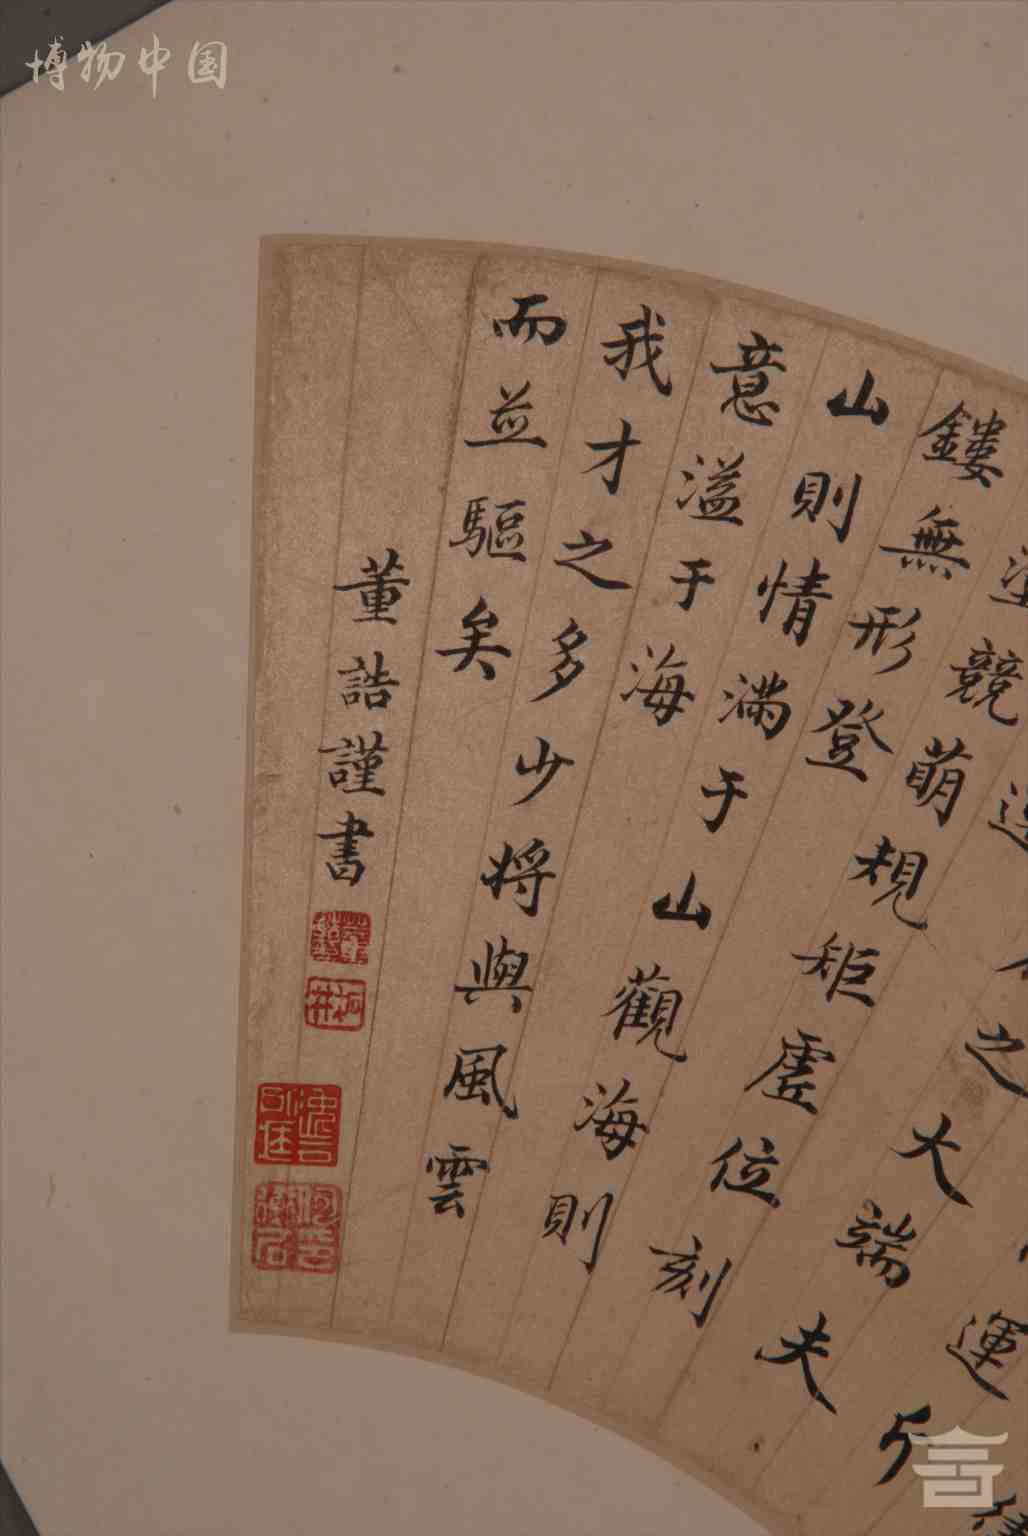 運斤
之大端夫
塗競萌規矩虛位刻
鏤無形登
山則情滿于山觀海則
意溢于海
我才之多少將與風雲
而並驅矣
董誥謹書
博物中国